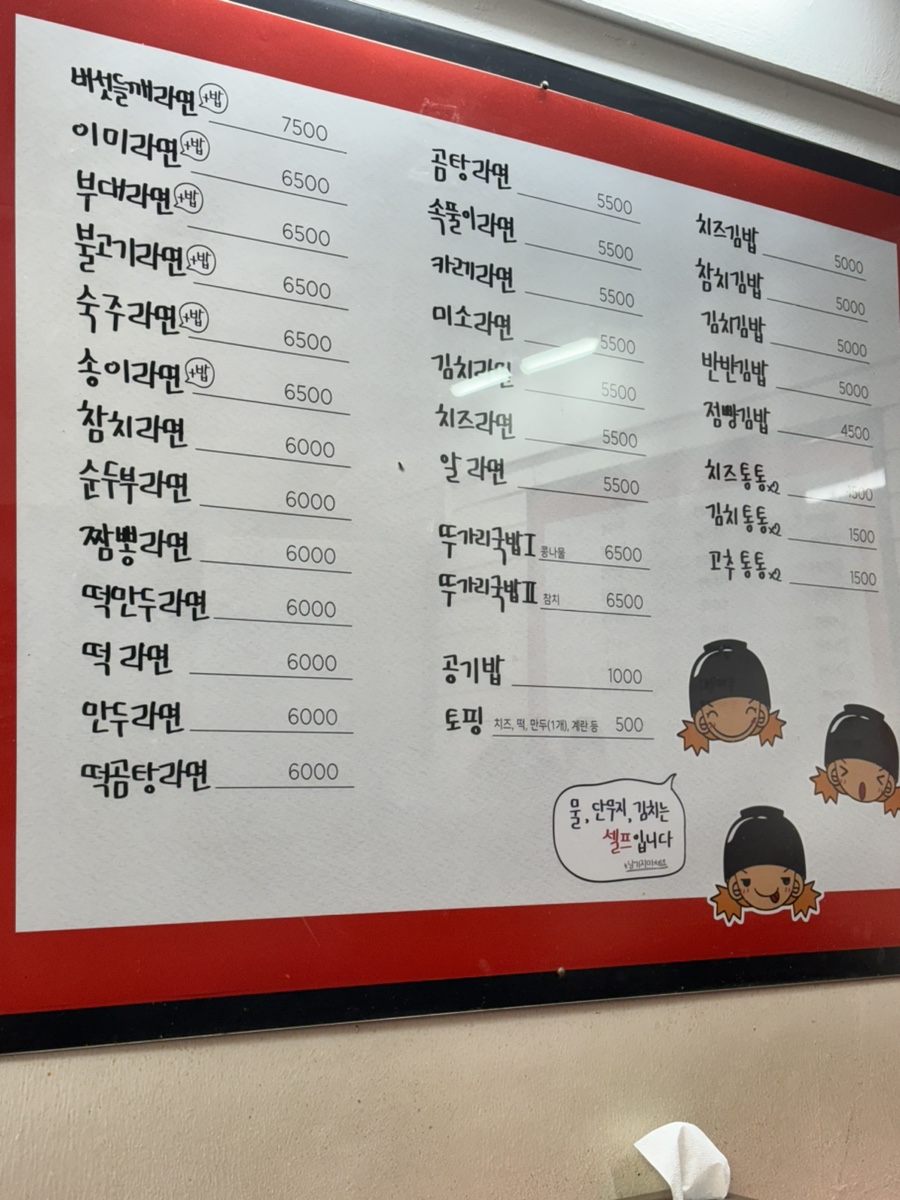 버섯들깨라면 +밥 7500
이미라면 +밥 6500
부대라면 +밥 6500
불고기라면 +밥 6500
숙주라면 +밥 6500
송이라면 +밥 6500
참치라면 6000
순두부라면 6000
짬뽕라면 6000
떡만두라면 6000
떡 라면 6000
만두라면 6000
떡곰탕라면 6000
곰탕라면 5500
속풀이라면 5500
카레라면 5500
미소라면 5500
김치라면 5500
치즈라면 5500
알 라면 5500
뚜가리국밥Ⅰ 콩나물 6500
뚜가리국밥Ⅱ 참치 6500
공기밥 1000
토핑 치즈, 떡, 만두(1개), 계란 등 500
치즈김밥 5000
참치김밥 5000
김치김밥 5000
반반김밥 5000
점빵김밥 4500
치즈통통x2 1500
김치통통x2 1500
고추통통x2 1500
물, 단무지, 김치는
셀프입니다